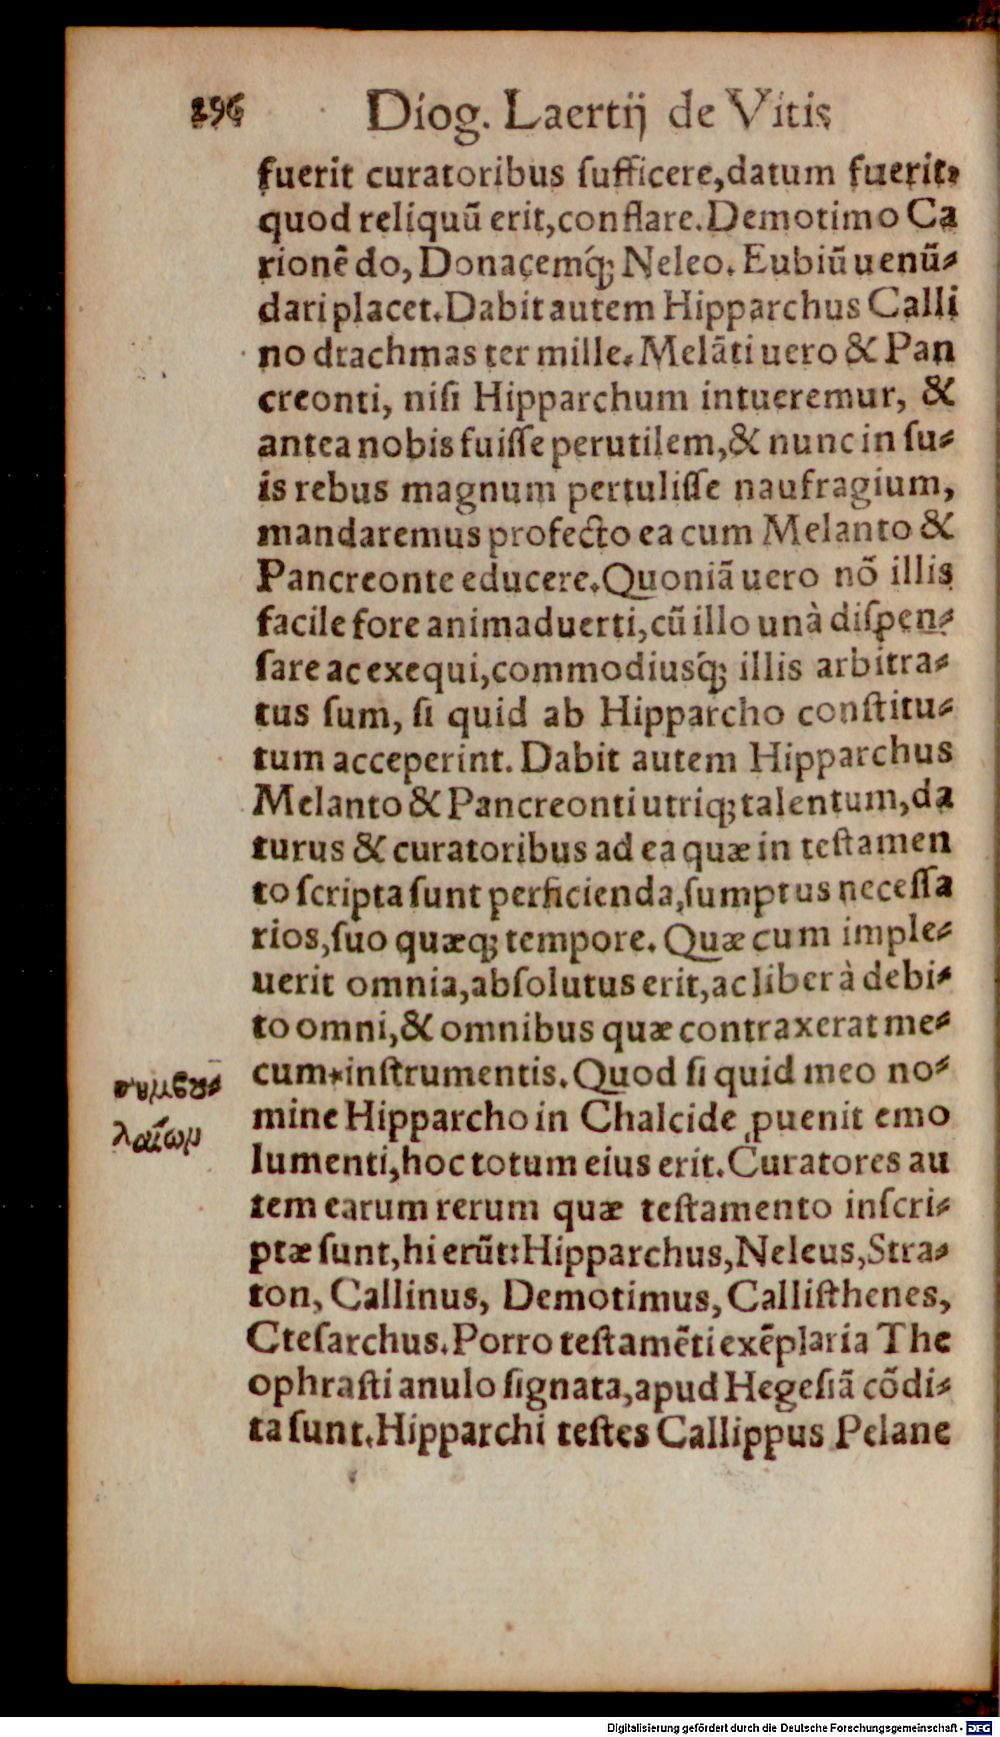 296 Diog. Laertij de Vitis
fuerit curatoribus ſufficere,datum fuerit,
quod reliquũ erit,conflare.Demotimo Ca
rionẽ do, Donacemq́; Neleo. Eubiũ uenũ-
dari placet.Dabit autem Hipparchus Calli
no drachmas ter mille. Melãti uero & Pan
creonti, niſi Hipparchum intueremur, &
antea nobis fuiſſe perutilem,& nunc in ſu-
is rebus magnum pertuliſſe naufragium,
mandaremus profecto ea cum Melanto &
Pancreonte educere.Quoniã uero nõ illis
facile fore animaduerti,cũ illo unà diſpen-
ſare ac exequi,commodiusq́; illis arbitra-
tus ſum, ſi quid ab Hipparcho conſtitu-
tum acceperint. Dabit autem Hipparchus
Melanto & Pancreonti utriq; talentum,da
turus & curatoribus ad ea quæ in teſtamen
to ſcripta ſunt perficienda,ſumptus neceſſa
rios,ſuo quæq; tempore. Quæ cum imple-
uerit omnia,abſolutus erit,ac liber à debi-
to omni,& omnibus quæ contraxerat me-
cum*inſtrumentis. Quod ſi quid meo no-
mine Hipparcho in Chalcide ꝓuenit emo
lumenti,hoc totum eius erit.Curatores au
tem earum rerum quæ teſtamento inſcri-
ptæ ſunt,hi erũt:Hipparchus,Neleus,Stra-
ton, Callinus, Demotimus, Calliſthenes,
Cteſarchus.Porro teſtamẽti exẽplaria The
ophraſti anulo ſignata,apud Hegeſiã cõdi-
ta ſunt.Hipparchi teſtes Callippus Pelane
λαίωμ
Digitalisierung gefördert durch die Deutsche Forschungsgemeinschaft - DFG